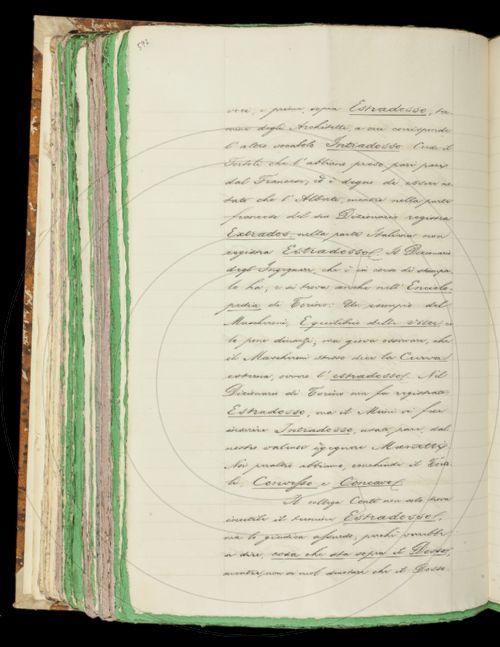 592
voci, e prima, sopra Estradosso, ter
mine degli Architetti, a cui corrisponde
l'altro vocabolo Intradosso. Crede il
che l'abbiamo preso pari pari
dal Francese, ed è degno di esser no
tato che l'Alberti, mentre nella parte
francese del suo Dizionario registra
Extrados, nella parte Italiana non
registra Estradosso. Il Dizionario
degli Ingegneri, che è in corso di stampa,
lo ha, e si trova anche nell' Enciclo
pedia di Torino. Un esempio del
Mascheroni, Equilibrio delle Volte,
lo pone dinanzi, ma giova osservare, che
il Mascheroni stesso dice la Curva
esterna, ovvero l'estradosso. Nel
Dizionario di Torino non fu registrato
Estradosso, ma il vi fece
inserire Intradosso, usato pare, dal
nostro valoroso ingegnere
Noi peraltro abbiamo, conchiude il
Convesso e Concavo.
Il collega Conti non solo trova
inutile il termine Estradosso,
ma lo giudica assurdo, perché vorrebbe
dire, cosa che sta sopra il Dosso,
mentre non si vuol che il Dosso